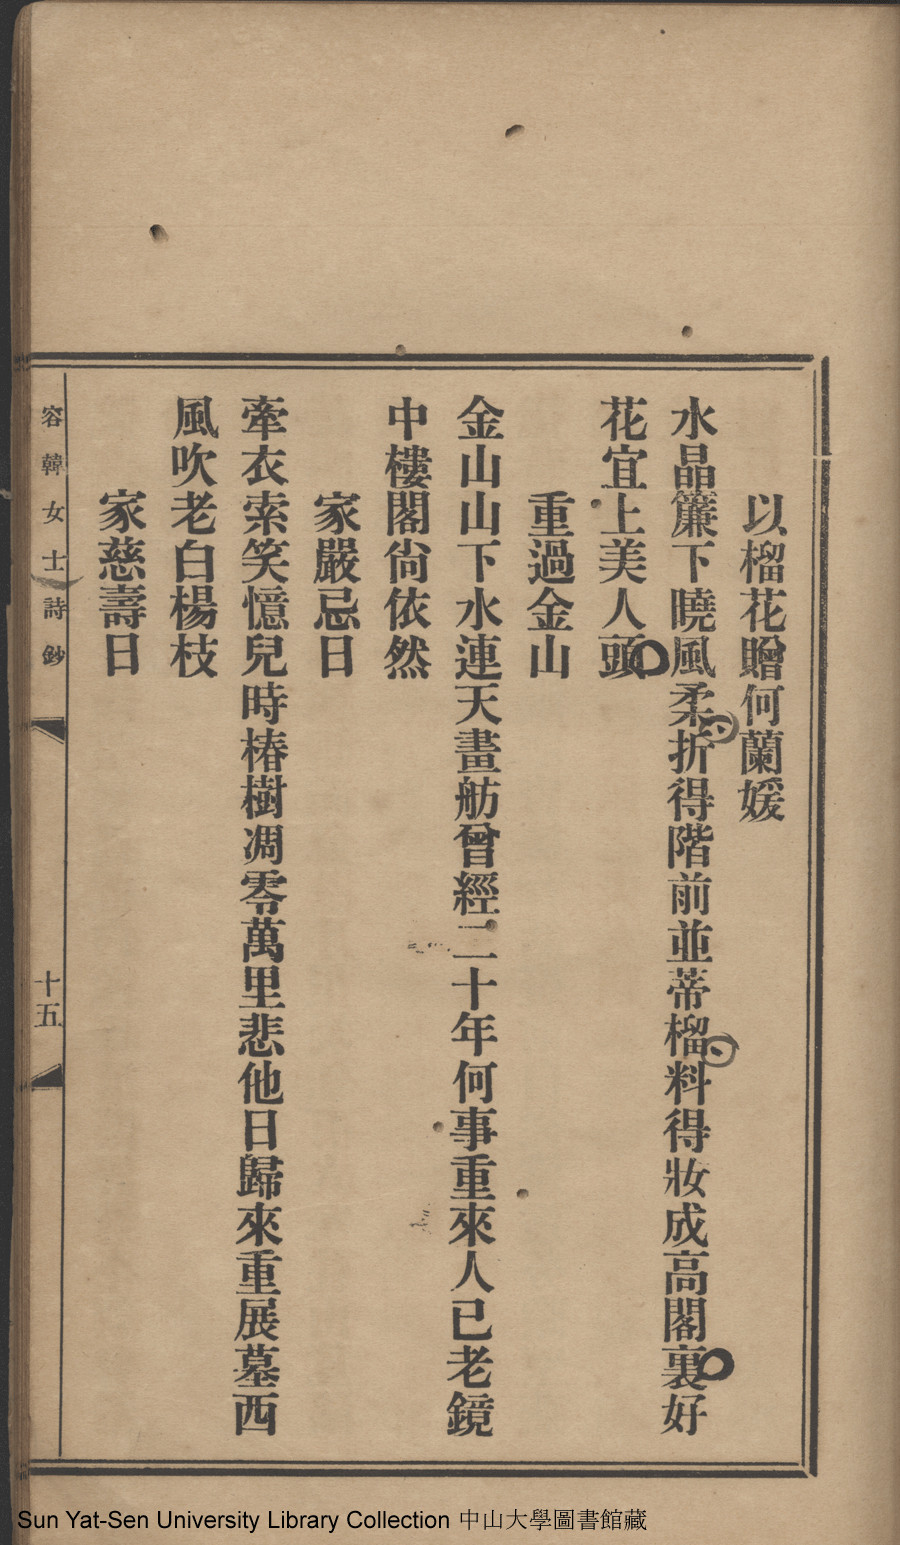 以榴花贈何蘭媛
水晶簾下曉風柔折得階前並蒂榴料得妝成高閣裏好
花宜上美人頭
重過金山
金山山下水連天畫舫曾經二十年何事重來人已老鏡
中樓閣尙依然
家嚴忌日
牽衣索笑憶兒時椿樹凋零萬里悲他日歸來重展墓西
風吹老白楊枝
家慈壽日
容韓女士詩鈔
十五
Sun Yat-Sen University Library Collection 中山大學圖書館藏